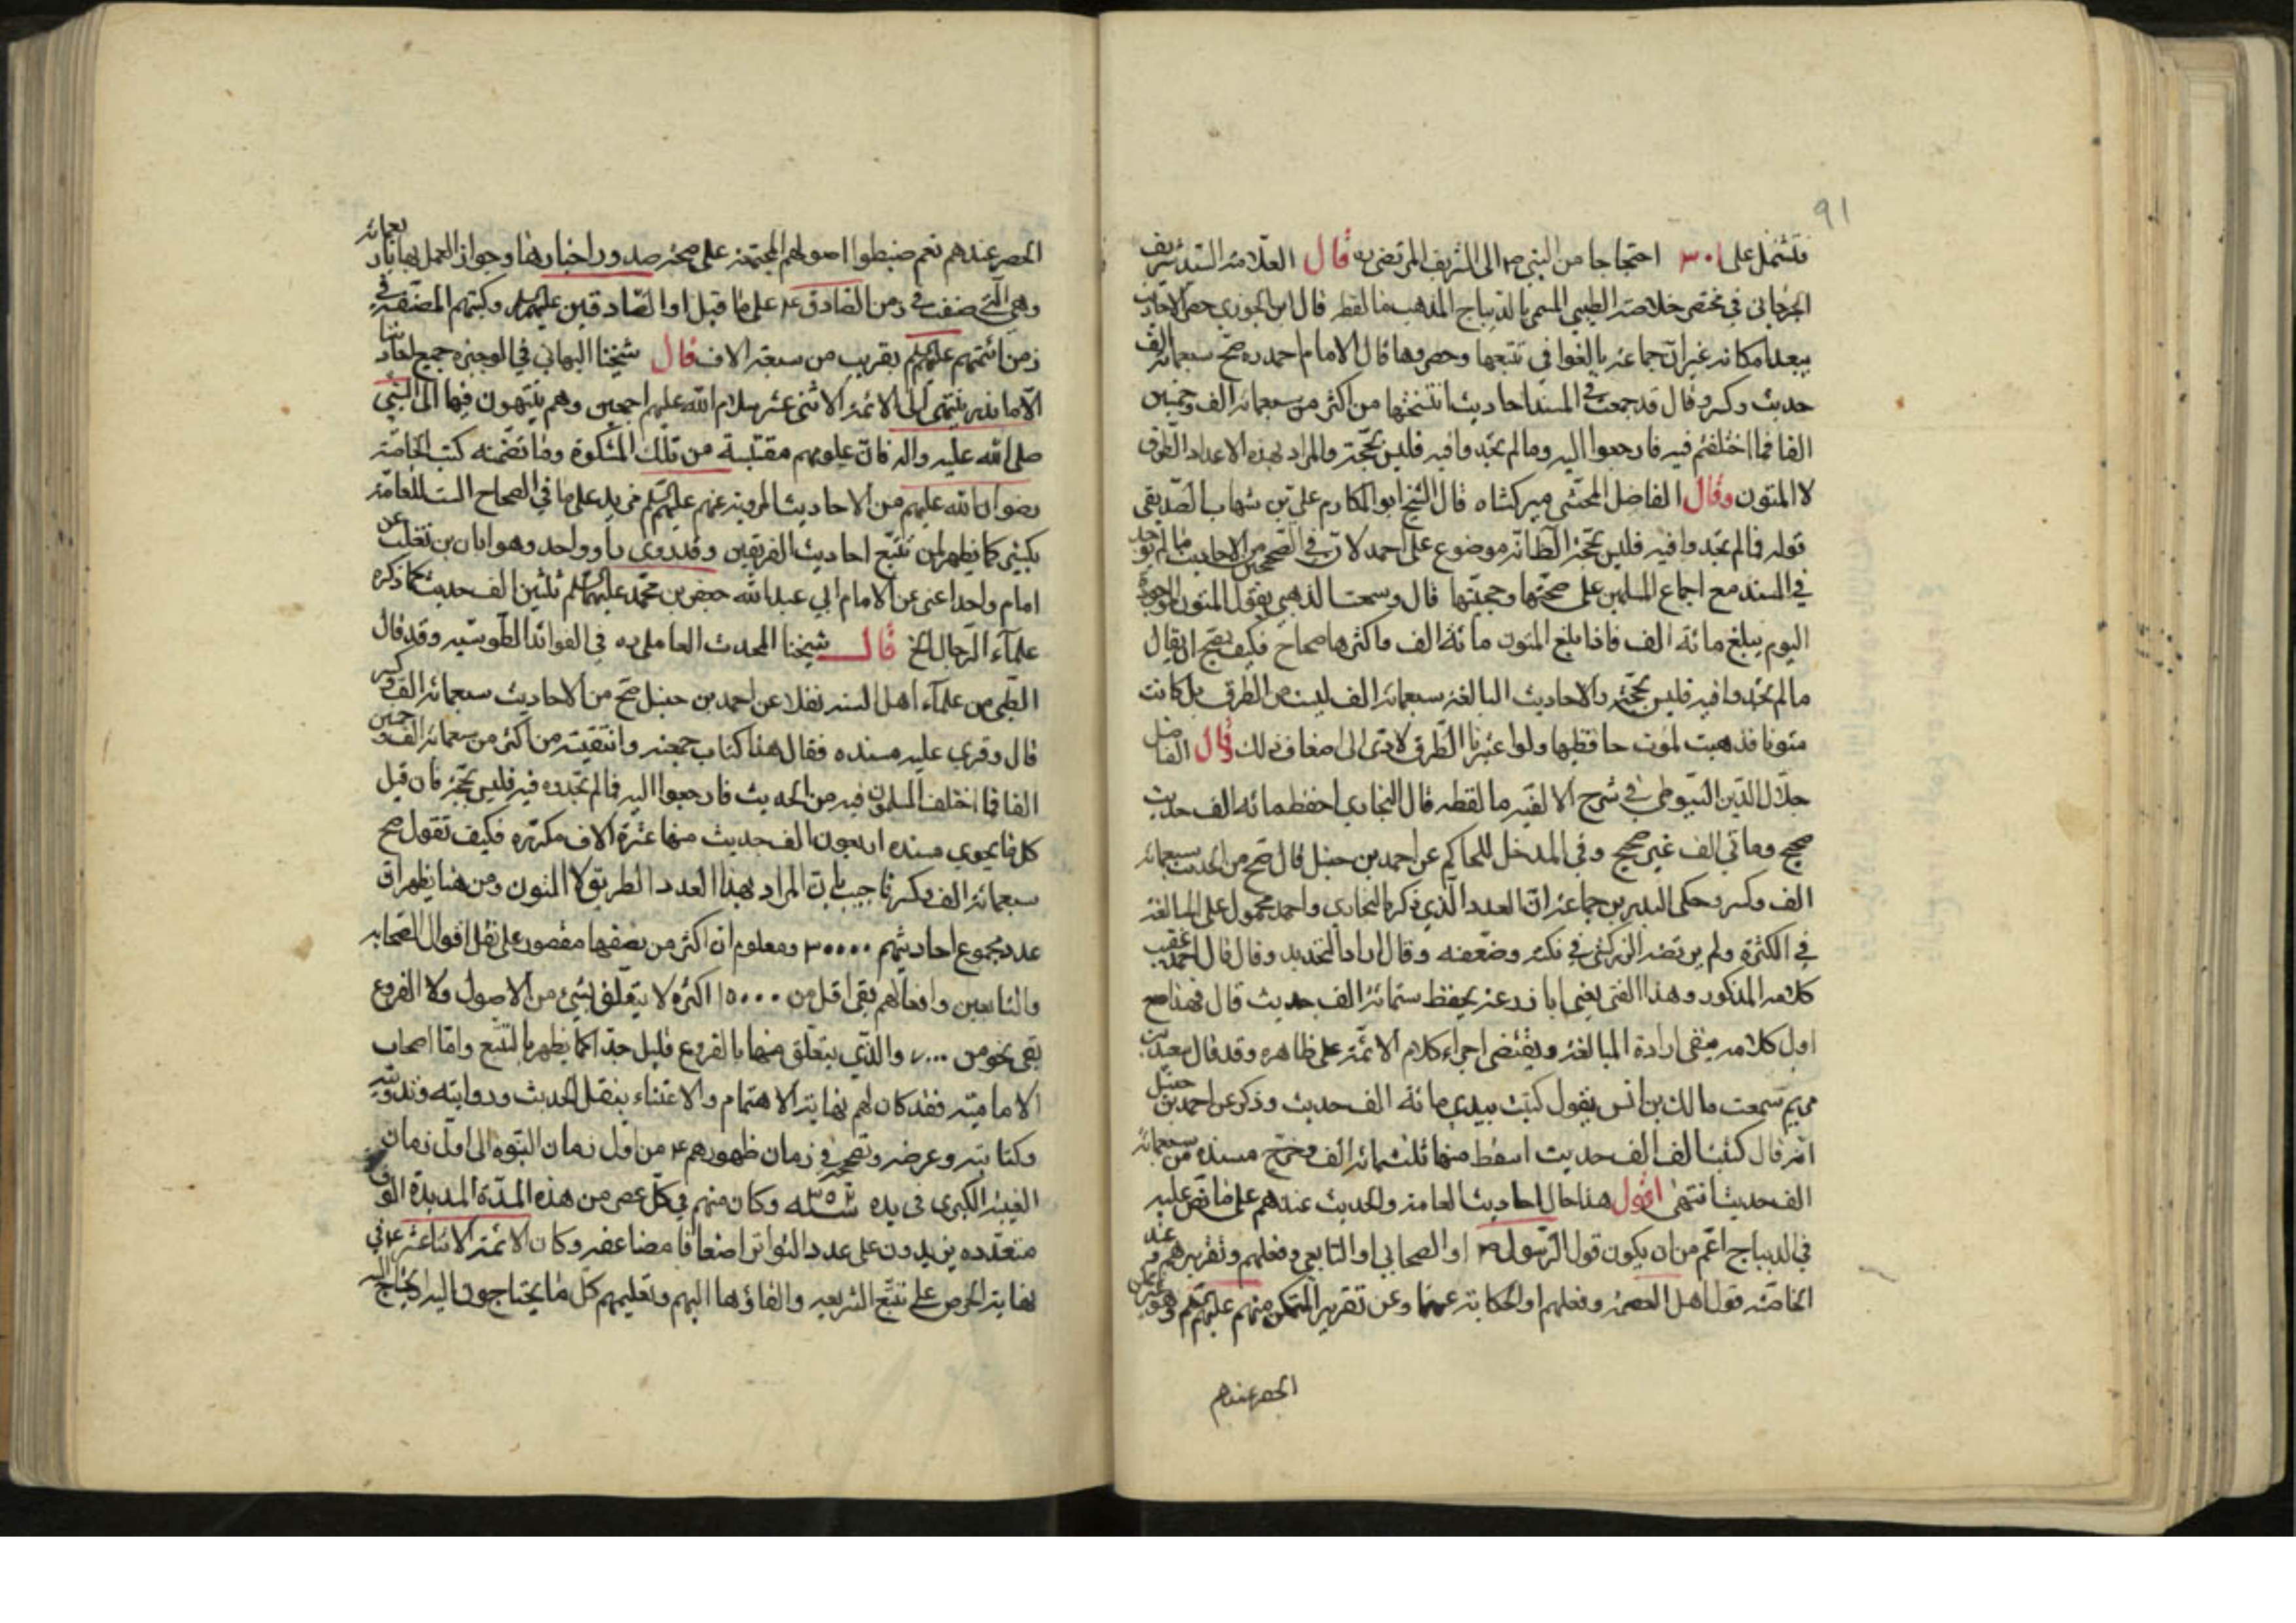 91
فتشتمل على ٣٠١ احتجاجا من النبي ص الى الشريف المرتضى ره قال العلامة السيد شريف
الجرجاني في مختصر خلاصة الطيبي المسمى بالديباج المذهب ما لفظه قال ابن الجوزي حصر الاحاديث
يبعد امكانه غير ان جماعة بالغوا في تتبعها وحصروها قال الامام احمد ره صح سبعمائة الف
حديث وكسر وقال قد جمعت في المسند احاديث انتخبتها من اكثر من سبعمائة الف وخمسين
الفا فما اختلفتم فيه فارجعوا اليه وما لم تجدوا فيه فليس بحجة والمراد بهذه الاعداد الطرق
لا المتون وقال الفاضل المحشي ميركشاه قال الشيخ ابو المكارم علي بن شهاب الصديقي
قوله فما لم تجدوا فيه فليس بحجة الظ انه موضوع على احمد لان في الصحيحين من الاحاديث ما لم توجد
في المسند مع اجماع المسلمين على صحتها وحجيتها قال وسمعت الذهبي يقول المتون الموجودة
اليوم يبلغ مائة الف فاذا بلغ المتون مائة الف واكثرها صحاح فكيف يصح ان يقال
ما لم تجدوا فيه فليس بحجة والاحاديث البالغة سبعمائة الف ليست من الطرق بل كانت
متونا فذهبت لموت حافظها ولو اعتبرنا الطرق لانتهى الى اضعاف ذلك وقال الفاضل
جلال الدين السيوطي في شرح الالفية ما لفظه قال البخاري احفظ مائة الف حديث
صحيح ومائتي الف غير صحيح وفي المدخل للحاكم عن احمد بن حنبل قال صح من الحديث سبعمائة
الف وكسر وحكى البدر بن جماعة ان العدد الذي ذكره البخاري واحمد محمول على المبالغة
في الكثرة ولم يرتضه الزركشي في نكته وضعفه وقال اراد التحديد وقال قال احمد عقيب
كلامه المذكور وهذا الفتى يعني ابا زرعة يحفظ ستمائة الف حديث قال فهذا مع
اول كلامه ينفي ارادة المبالغة ويقتضي اجراء كلام الائمة على ظاهره وقد قال سعيد بن
مريم سمعت مالك بن انس يقول كتبت بيدي مائة الف حديث وذكر عن احمد بن حنبل
انه قال كتبت الف الف حديث اسقط منها ثلثمائة الف وخرج مسنده من سبعمائة
الف حديث انتهى اقول هذا حال احاديث العامة والحديث عندهم على ما نص عليه
في الديباج اعم من ان يكون قول الرسول ص او الصحابي او التابعي وفعلهم وتقريرهم وعند
الخاصة قول اهل العصمة وفعلهم او الحكاية عنهما وعن تقرير المتمكن منهم عليهم السلم وهو
الحصر عندهم
الحصر عندهم نعم ضبطوا اصولهم المجتمعة على صحة صدور اخبارها وجواز العمل بها باربعمائة
وهي التي صنفت في زمن الصادق ع على ما قيل او الصادقين عليهم السلم وكتبهم المصنفة في
زمن ائمتهم عليهم السلم بقريب من سبعة الاف قال شيخنا البهائي في الوجيزة جميع احاديثنا
الا ما ندر ينتهي الى الائمة الاثني عشر سلام الله عليهم اجمعين وهم ينتهون فيها الى النبي
صلى الله عليه واله فان علومهم مقتبسة من تلك المشكوة وما تضمنته كتب الخاصة
رضوان الله عليهم من الاحاديث المروية عنهم عليهم السلم مزيد على ما في الصحاح الست للعامة
بكثير كما يظهر لمن تتبع احاديث الفريقين وقد روى راو واحد وهو ابان بن تغلب عن
امام واحد اعني عن الامام ابي عبد الله جعفر بن محمد عليهما السلم ثلثين الف حديث كما ذكره
علماء الرجال الخ قال شيخنا المحدث العاملي ره في الفوائد الطوسيه وقد قال
الطيبي من علماء اهل السنة نقلا عن احمد بن حنبل صح من الاحاديث سبعمائة الف وكسر
قال وقرئ عليه مسنده فقال هذا كتاب جمعته وانتقيته من اكثر من سبعمائة الف وخمسين
الفا فما اختلف المسلمون فيه من الحديث فارجعوا اليه فما لم تجدوه فيه فليس بحجة فان قيل
كل ما يحوي مسنده اربعون الف حديث منها عشرة الاف مكررة فكيف تقول صح
سبعمائة الف وكسر فاجيب بان المراد بهذا العدد الطريق لا المتون ومن هنا يظهر ان
عدد مجموع احاديثهم ٣٠٠٠٠ ومعلوم ان اكثر من نصفها مقصور على نقل اقوال الصحابه
والتابعين وافعالهم بقى اقل من ١٥٠٠٠ اكثره لا يتعلق بشئ من الاصول ولا الفروع
بقى نحو من ٧٠٠٠ والذي يتعلق منها بالفروع قليل جدا كما يظهر بالتتبع واما اصحاب
الاماميه فقد كان لهم نهاية الاهتمام والاعتناء بنقل الحديث وروايته وتدوينه
وكتابته وعرضه وتصحيحه في زمان ظهورهم ع من اول زمان النبوة الى اول زمان
الغيبة الكبرى وكان منهم في كل عصر من هذه المدة المديدة الوف
متعدده يزيدون على عدد التواتر اضعافا مضاعفه وكان الائمة الاثنا عشر ع في
نهاية الحرص على تتبع الشريعه والقاؤها اليهم وتعليمهم كل ما يحتاجون اليه